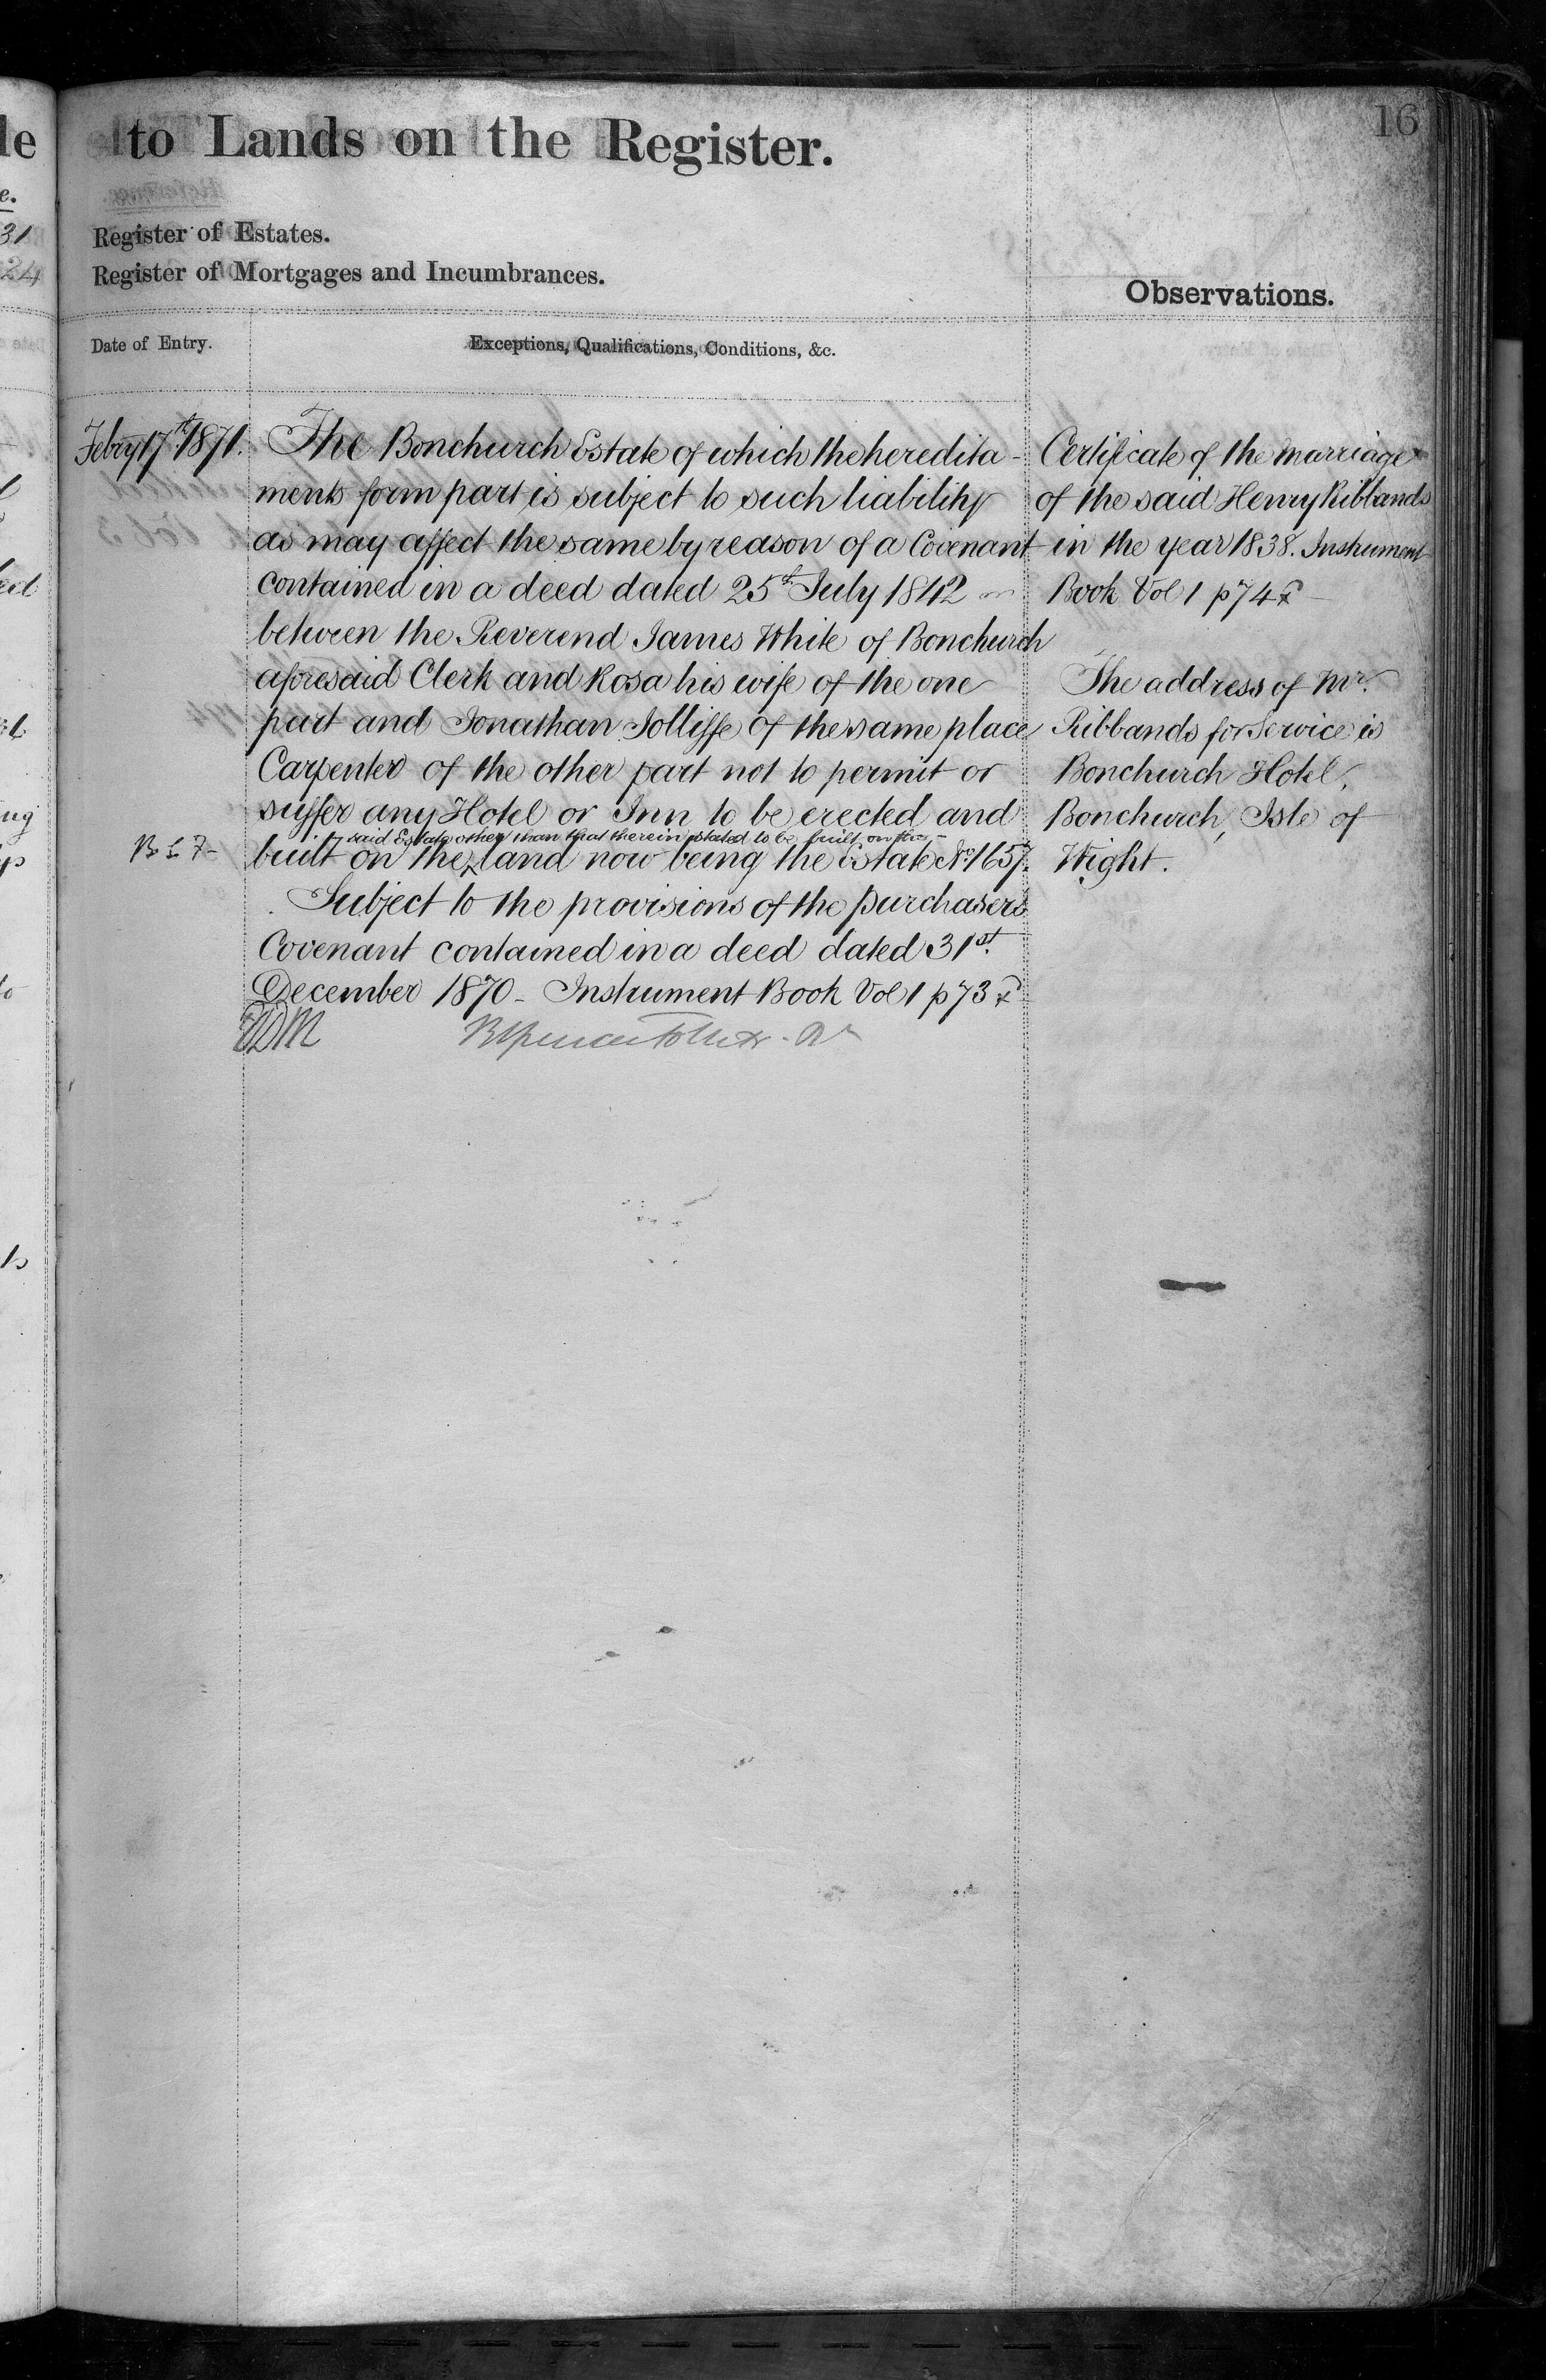 16
to Lands on the Register.
Register of Estates.
Register of Mortgages and Incumbrances.
Observations.
Date of Entry.
Exceptions, Qualifications, Conditions, &c.
Febry 17th 1871.
The Bonchurch Estate of which the heredita-
ments form part is subject to such liability
as may affect the same by reason of a Covenant
contained in a deed dated 25th July 1842
between the Reverend James White of Bonchurch
aforesaid Clerk and Rosa his wife of the one
part and Jonathan Jolliffe of the same place
Carpenter of the other part not to permit or
suffer any Hotel or Inn to be erected and
said Estate other than that therein stated to be built on the
built on the land now being the Estate No 1657.
Subject to the provisions of the purchasers
Covenant contained in a deed dated 31st.
December 1870 - Instrument Book Vol 1 p 73
Certificate of the marriage
of the said Henry Ribbands
in the year 1838. Instrument
Book Vol 1 p 74
The address of Mr.
Ribbands for Service is
Bonchurch Hotel,
Bonchurch, Isle of
Wight.